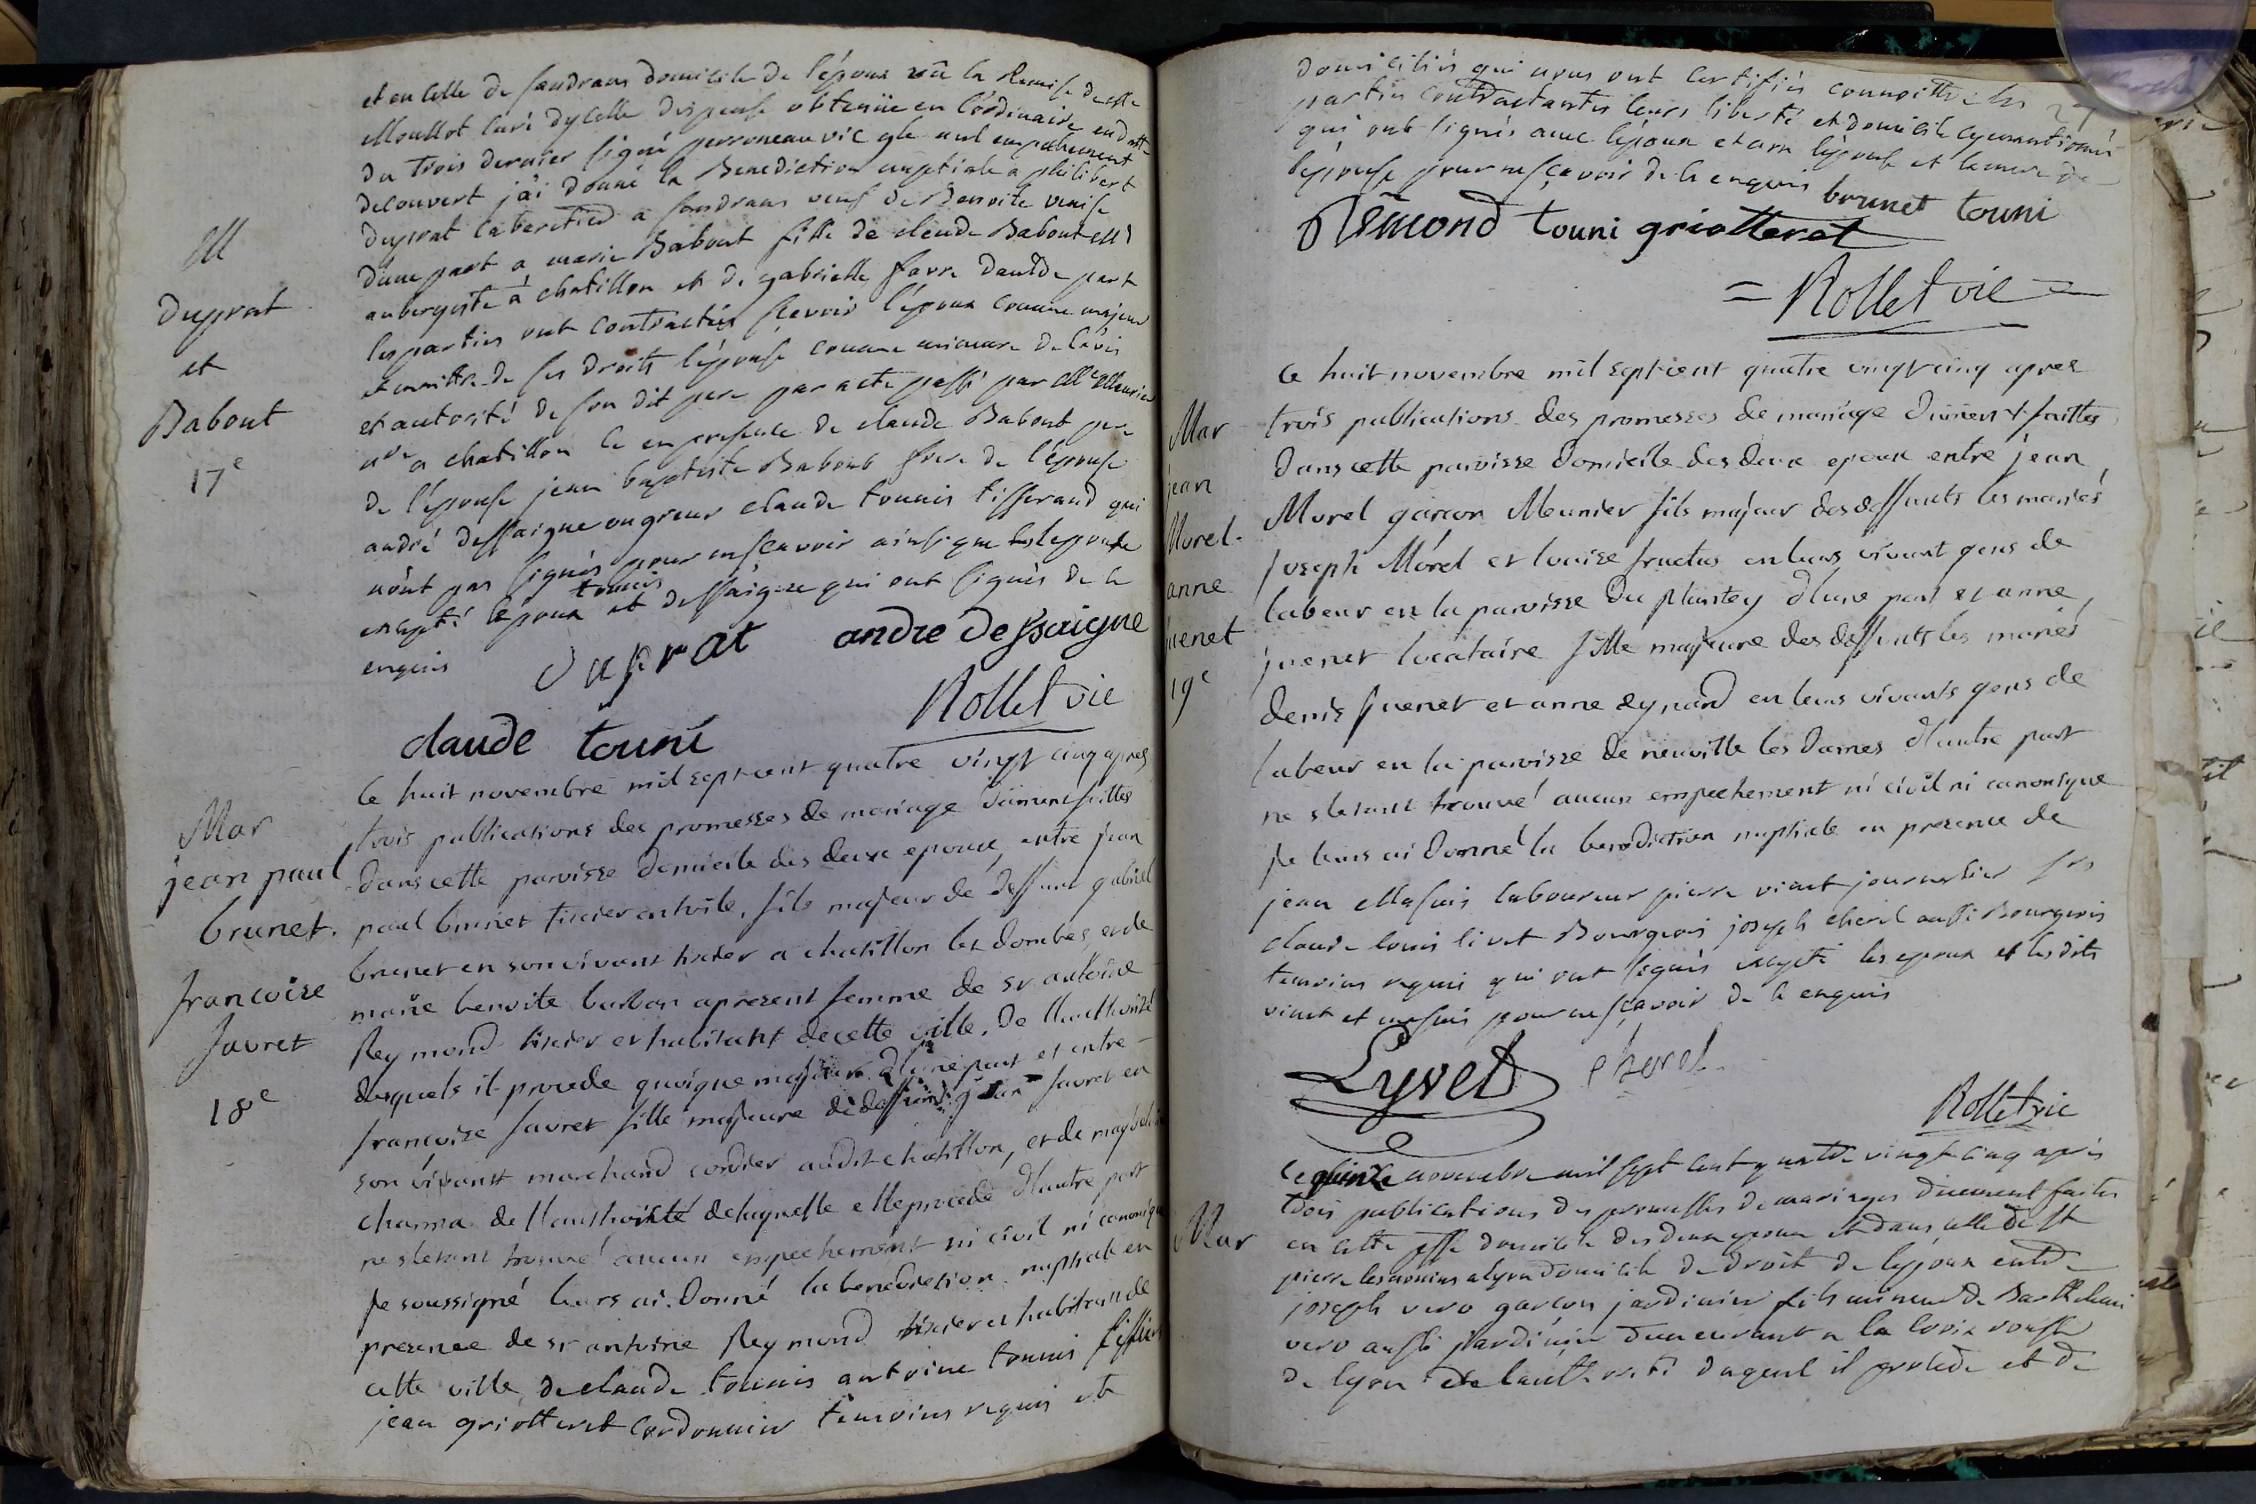 et en celle de sandrans domicile de l'époux vû la Remise de Mre
Moullot curé d'ycelle dispense obtenüe en l'ordinaire en datte
du trois dernier signé perroneau vic gle nul empechement
decouvert j'ai donné la Benediction nuptiale a philibert
duprat cabaretier a sandrans veuf de Benoite
d'une part a marie Babout fille de claude Babout Md
aubergiste à chatillon et de gabrielle favre dautre part
les parties ont contractées sçavoir l'époux comme majeur
et maitre de ses droits l'épouse comme mineure de l'avis
et autorité de son dit pere par acte passé par Me
nre a chatillon le en presence de claude Babout pere
de l'épouse jean baptiste Babout frere de l'épouse
andré dessaigne ongreur claude tounis tisserand qui
n'ont pas signés pour ne sçavoir ainsi que l'epouse
excepté l'époux tounis et dessaigne qui ont signés de ce
enquis
M
Duprat
et
Babout
17e
duprat andre dessaigne
claude touni Rollet vic
Mar
jean paul
brunet.
francoise
favret
18e
Ce huit novembre mil sept-cent quatre vingt cinq apres
trois publications des promesses de mariage düment faittes
dans cette paroisse domicile des deux epoux, entre jean
paul brunet tixier en toile, fils majeur de deffunt gabriel
brunet en son vivant tixier a chatillon les dombes, et de
marie benoite barban apresent femme de sr antoine
Reymond tixier et habitant de cette ville, de l'authorité
desquels il procede quoique majeur d'une part et entre
françoise favret fille majeure de deffunt jean favret en
son vivant marchand cordier audit chatillon, et de magdelaine
charma de l'authorité de laquelle elle procede d'autre part
ne s'etant trouvé aucun empechement ni civil ni canonique
Je soussigné leurs ai donné la benediction nuptiale en
presence de sr antoine Reymond tixier et habitant de
cette ville, de claude tounis antoine tounis tissiers
jean griotteret cordonnier temoins requis et
domiciliés qui nous ont certifiés connoitre les
parties contractantes leurs liberté et domicile cy mentionnés
qui ont signés avec l'époux et non l'épouse et la mere de
l'épouse pour ne sçavoir de ce enquis brunet touni
Remond touni griotteret
= Rollet vic =
Mar
jean
Morel.
anne
juenet
19e
Ce huit novembre mil sept-cent quatre vingt cinq apres
trois publications des promesses de mariage düment faittes
dans cette paroisse domicile des deux epoux entre jean
Morel garçon Meunier fils majeur des deffunts les mariés
joseph Morel et louise fructus en leurs vivant gens de
labeur en la paroisse du plantey d'une part et anne
juenet locataire fille majeure des deffunts les mariés
denis juenet et anne eynard en leurs vivants gens de
labeur en la paroisse de neuville les Dames d'autre part
ne s'etant trouvé aucun empechement ni civil ni canonique
Je leurs ai donné la benediction nuptiale en presence de
jean Masuis laboureur pierre viout journalier srs
claude louis livet Bourgeois joseph cherel aussi Bourgeois
temoins requis qui ont signés excepté les epoux et les dits
viout et masuis pour ne sçavoir de ce enquis
Lyvet cherel
Rollet vic
Mar
Ce quinze novembre mil sept cent quatre vingt-cinq après
trois publications des promesses de mariages duement faites
en cette psse domicile des deux epoux et dans celle de St
pierre a lyon domicile de droit de l'époux entre
joseph vero garçon jardinier fils mineur de Barthelemi
vero aussi jardinier demeurant a la croix rousse
de lyon de lauthorité duquel il procede et de